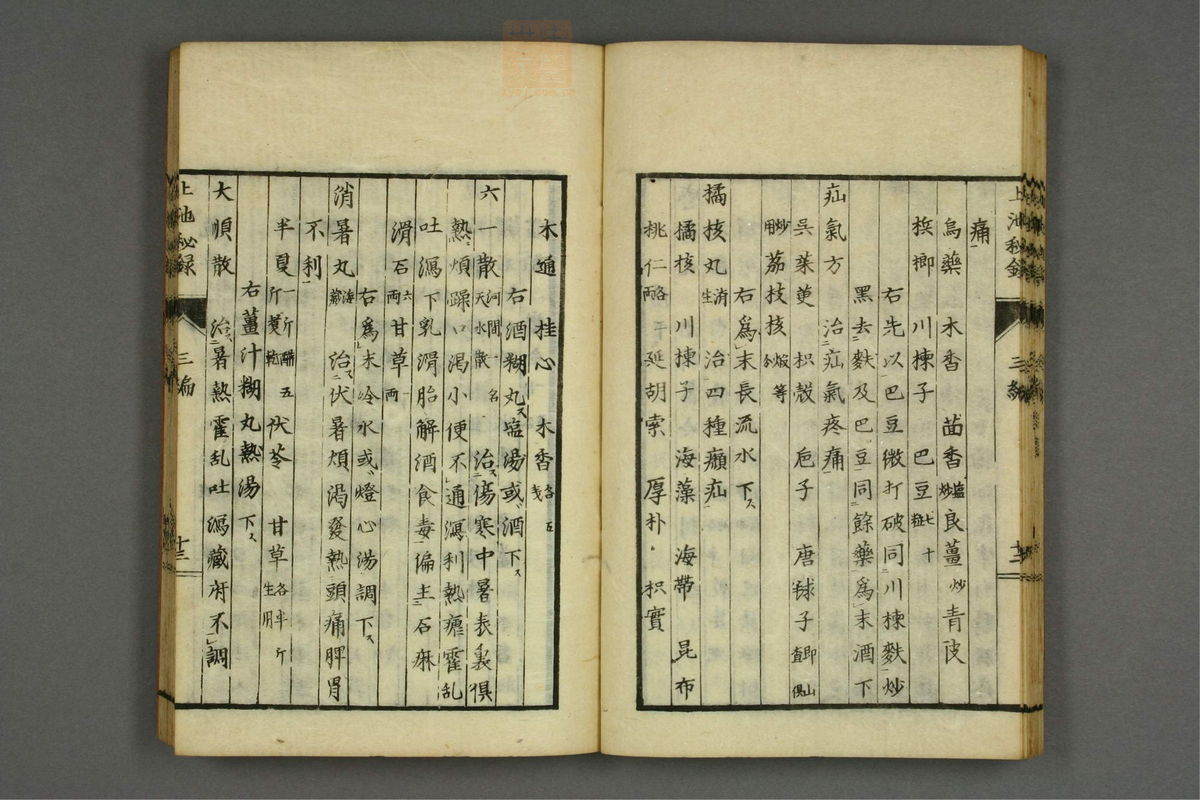 痛
烏藥 木香 茴香 塩炒 良薑 炒 青皮
梹榔 川楝子 巴豆 七十粒
右先以巴豆微打破同川楝麩炒
黑去麩及巴豆同餘藥爲末酒下
疝氣方 治疝氣疼痛
呉茱萸 枳殼 巵子 唐毬子 即山査俱
炒用 茘枝核 煅等分
右爲末長流水下ス
橘核丸 消生 治四種癩疝
橘核 川楝子 海藻 海帶 昆布
桃仁 各一両 延胡索 厚朴 枳實
木通 桂心 木香 各五戔
右酒糊丸ス塩湯或酒下ス
六一散 河間一名天水散 治ス傷寒中暑表裏俱
熱煩躁口渇小便不通瀉利熱瘧霍乱
吐瀉下乳滑胎解酒食毒偏主石痳
滑石 六両 甘草 一両
右爲末冷水或燈心湯調下ス
消暑丸 海藏 治ス伏暑煩渇發熱頭痛脾胃
不利
半夏 一斤醋五斤煑乾 茯苓 甘草 各半斤生用
右薑汁糊丸熱湯下ス
大順散 治ス暑熱霍乱吐瀉藏府不調
上池秘録 三編 十三